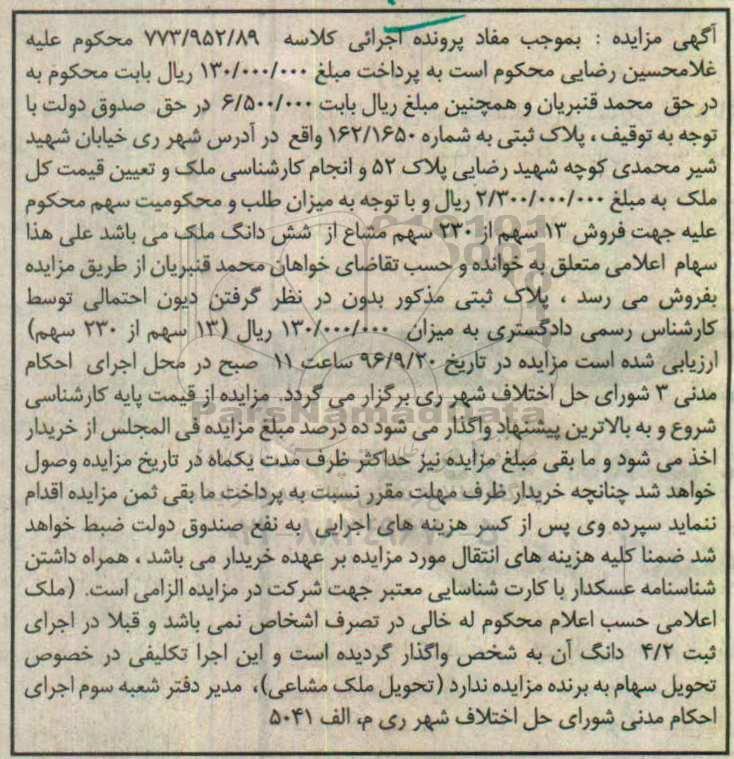 آگهی مزایده : بموجب مفاد پرونده اجرائی کلاسه ۷۷۳/۹۵۲/۸۹ محکوم علیه
غلامحسین رضایی محکوم است به پرداخت مبلغ ۱۳۰/۰۰۰/۰۰۰ ریال بابت محکوم به
در حق محمد قنبریان و همچنین مبلغ ریال بابت ۶/۵۰۰/۰۰۰ در حق صدوق دولت با
توجه به توقیف ، پلاک ثبتی به شماره ۱۶۲/۱۶۵۰ واقع در آدرس شهر ری خیابان شهید
شیر محمدی کوچه شهید رضایی پلاک ۵۲ و انجام کارشناسی ملک و تعیین قیمت کل
ملک به مبلغ ۲/۳۰۰/۰۰۰/۰۰۰ ریال و با توجه به میزان طلب و محکومیت سهم محکوم
علیه جهت فروش ۱۳ سهم از ۲۳۰ سهم مشاع از شش دانگ ملک می باشد علی هذا
سهام اعلامی متعلق به خوانده و حسب تقاضای خواهان محمد قنبریان از طریق مزایده
بفروش می رسد ، پلاک ثبتی مذکور بدون در نظر گرفتن دیون احتمالی توسط
کارشناس رسمی دادگستری به میزان ۱۳۰/۰۰۰/۰۰۰ ریال (۱۳ سهم از ۲۳۰ سهم)
ارزیابی شده است مزایده در تاریخ ۹۶/۹/۲۰ ساعت ۱۱ صبح در محل اجرای احکام
مدنی ۳ شورای حل اختلاف شهر ری برگزار می گردد. مزایده از قیمت پایه کارشناسی
شروع و به بالاترین پیشنهاد واگذار می شود ده درصد مبلغ مزایده فی المجلس از خریدار
اخذ می شود و ما بقی مبلغ مزایده نیز حداکثر ظرف مدت یکماه در تاریخ مزایده وصول
خواهد شد چنانچه خریدار ظرف مهلت مقرر نسبت به پرداخت ما بقی ثمن مزایده اقدام
ننماید سپرده وی پس از کسر هزینه های اجرایی به نفع صندوق دولت ضبط خواهد
شد ضمنا کلیه هزینه های انتقال مورد مزایده بر عهده خریدار می باشد ، همراه داشتن
شناسنامه عسکدار با کارت شناسایی معتبر جهت شرکت در مزایده الزامی است. (ملک
اعلامی حسب اعلام محکوم له خالی در تصرف اشخاص نمی باشد و قبلا در اجرای
ثبت ۴/۲ دانگ آن به شخص واگذار گردیده است و این اجرا تکلیفی در خصوص
تحویل سهام به برنده مزایده ندارد (تحویل ملک مشاعی)، مدیر دفتر شعبه سوم اجرای
احکام مدنی شورای حل اختلاف شهر ری م، الف ۵۰۴۱
ParsNamadData